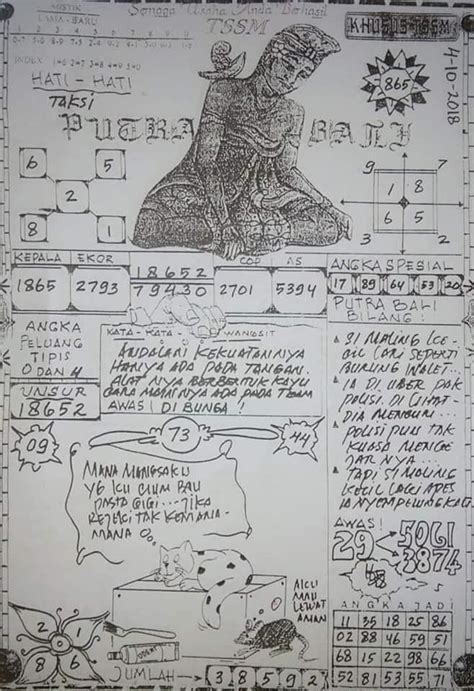 MISTIK
LAMA - BARU
Semoga Usaha Anda Berhasil
TSSM
KHUSUS TSSM
4-10-2018
INDEX
HATI - HATI
TAKSI
PUTRA BALI
865
6 5
2
8 1
9 7
1 8
6 5
3 2
KEPALA EKOR
1865 2793
18652
79430
COD AS
2701 5394
ANGKA SPESIAL
17 89 64 53 20
ANGKA
PELUANG
TIPIS
0 DAN 4
UNSUR
18652
KATA - KATA WANGSIT
ANDALAN KEKUATANNYA
HANYA ADA PADA TANGAN.
ALAT NYA BERBENTUK KAYU
CARA MAIN NYA ADA PADA TEAM
AWAS! DI BUNGA!
PUTRA BALI
BILANG!
SI MALING KE-
CIL LARI SEPERTI
BURUNG WALET...
IA DI UBER PAK
POLISI. DI LIHAT-
DIA MENBURI...
POLISI PUN TAK
KUASA MENGE
JAR NYA.
TADI SI MALING
KECIL LAGI APES
IA NYEMPLUNGKAN
09
73
44
MANA MANGSAKU
YG KU CIUM BAU
PASTA GIGI...JIKA
REJEKI TAK KEMANA-
MANA
AWAS!
29 5061
3874
AICU
MAU
LEWAT
AMAN
2 1
8 6
JUMLAH
3 8 5 9 2
ANGKA JADI
11 35 18 25 86
02 88 46 59 51
68 15 22 98 66
52 81 53 55 71